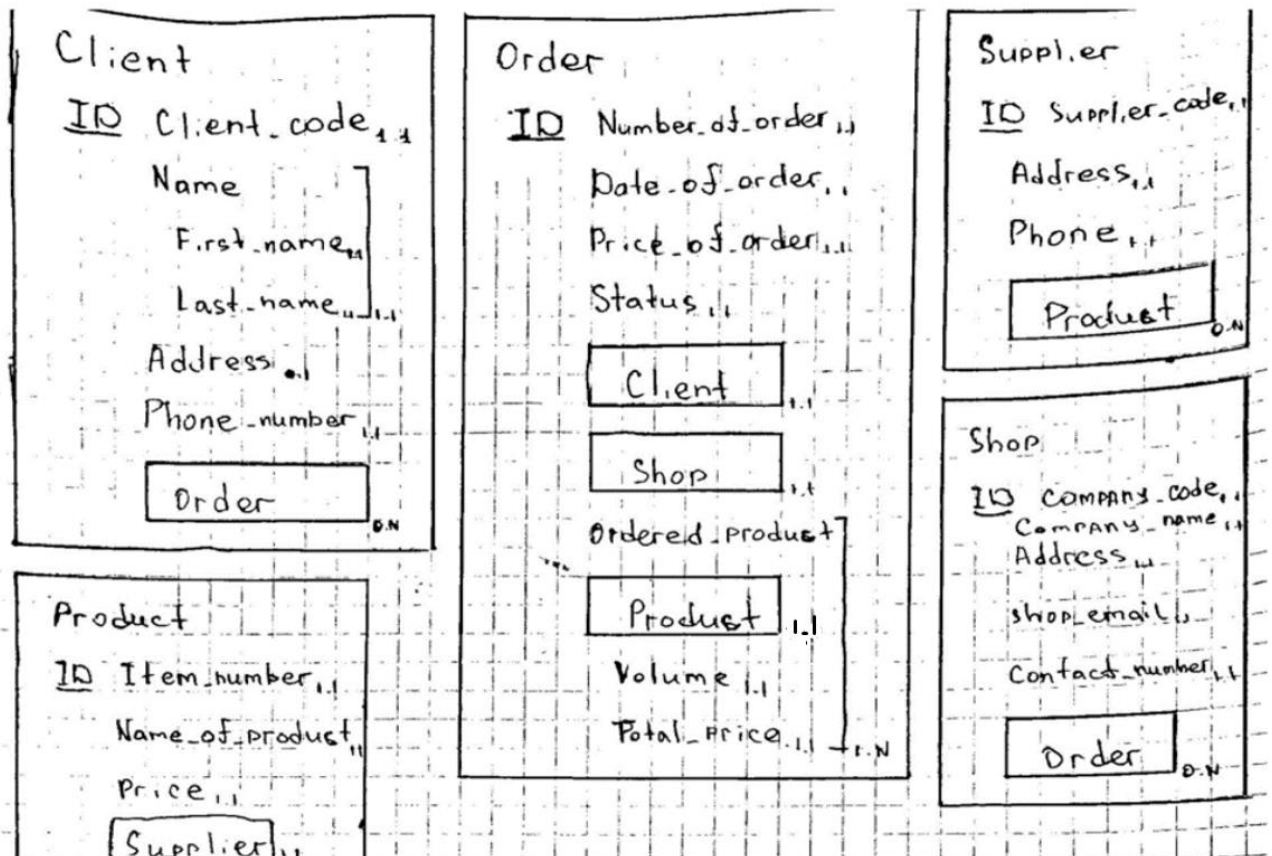 Client
ID Client_code 1.1
Name
First_name 1.1
Last_name 1.1 1.1
Address 0.1
Phone_number 1.1
Order
0.N
Product
ID Item_number 1.1
Name_of_product 1.1
Price 1.1
Supplier 1.1
Order
ID Number_of_order 1.1
Date_of_order 1.1
Price_of_order 1.1
Status 1.1
Client
1.1
Shop
1.1
Ordered_product
Product 1.1
Volume 1.1
Total_price 1.1 1.N
Supplier
ID Supplier_code 1.1
Address 1.1
Phone 1.1
Product
0.N
Shop
ID Company_code 1.1
Company_name 1.1
Address 1.1
shop_email 1.1
Contact_number 1.1
Order
0.N